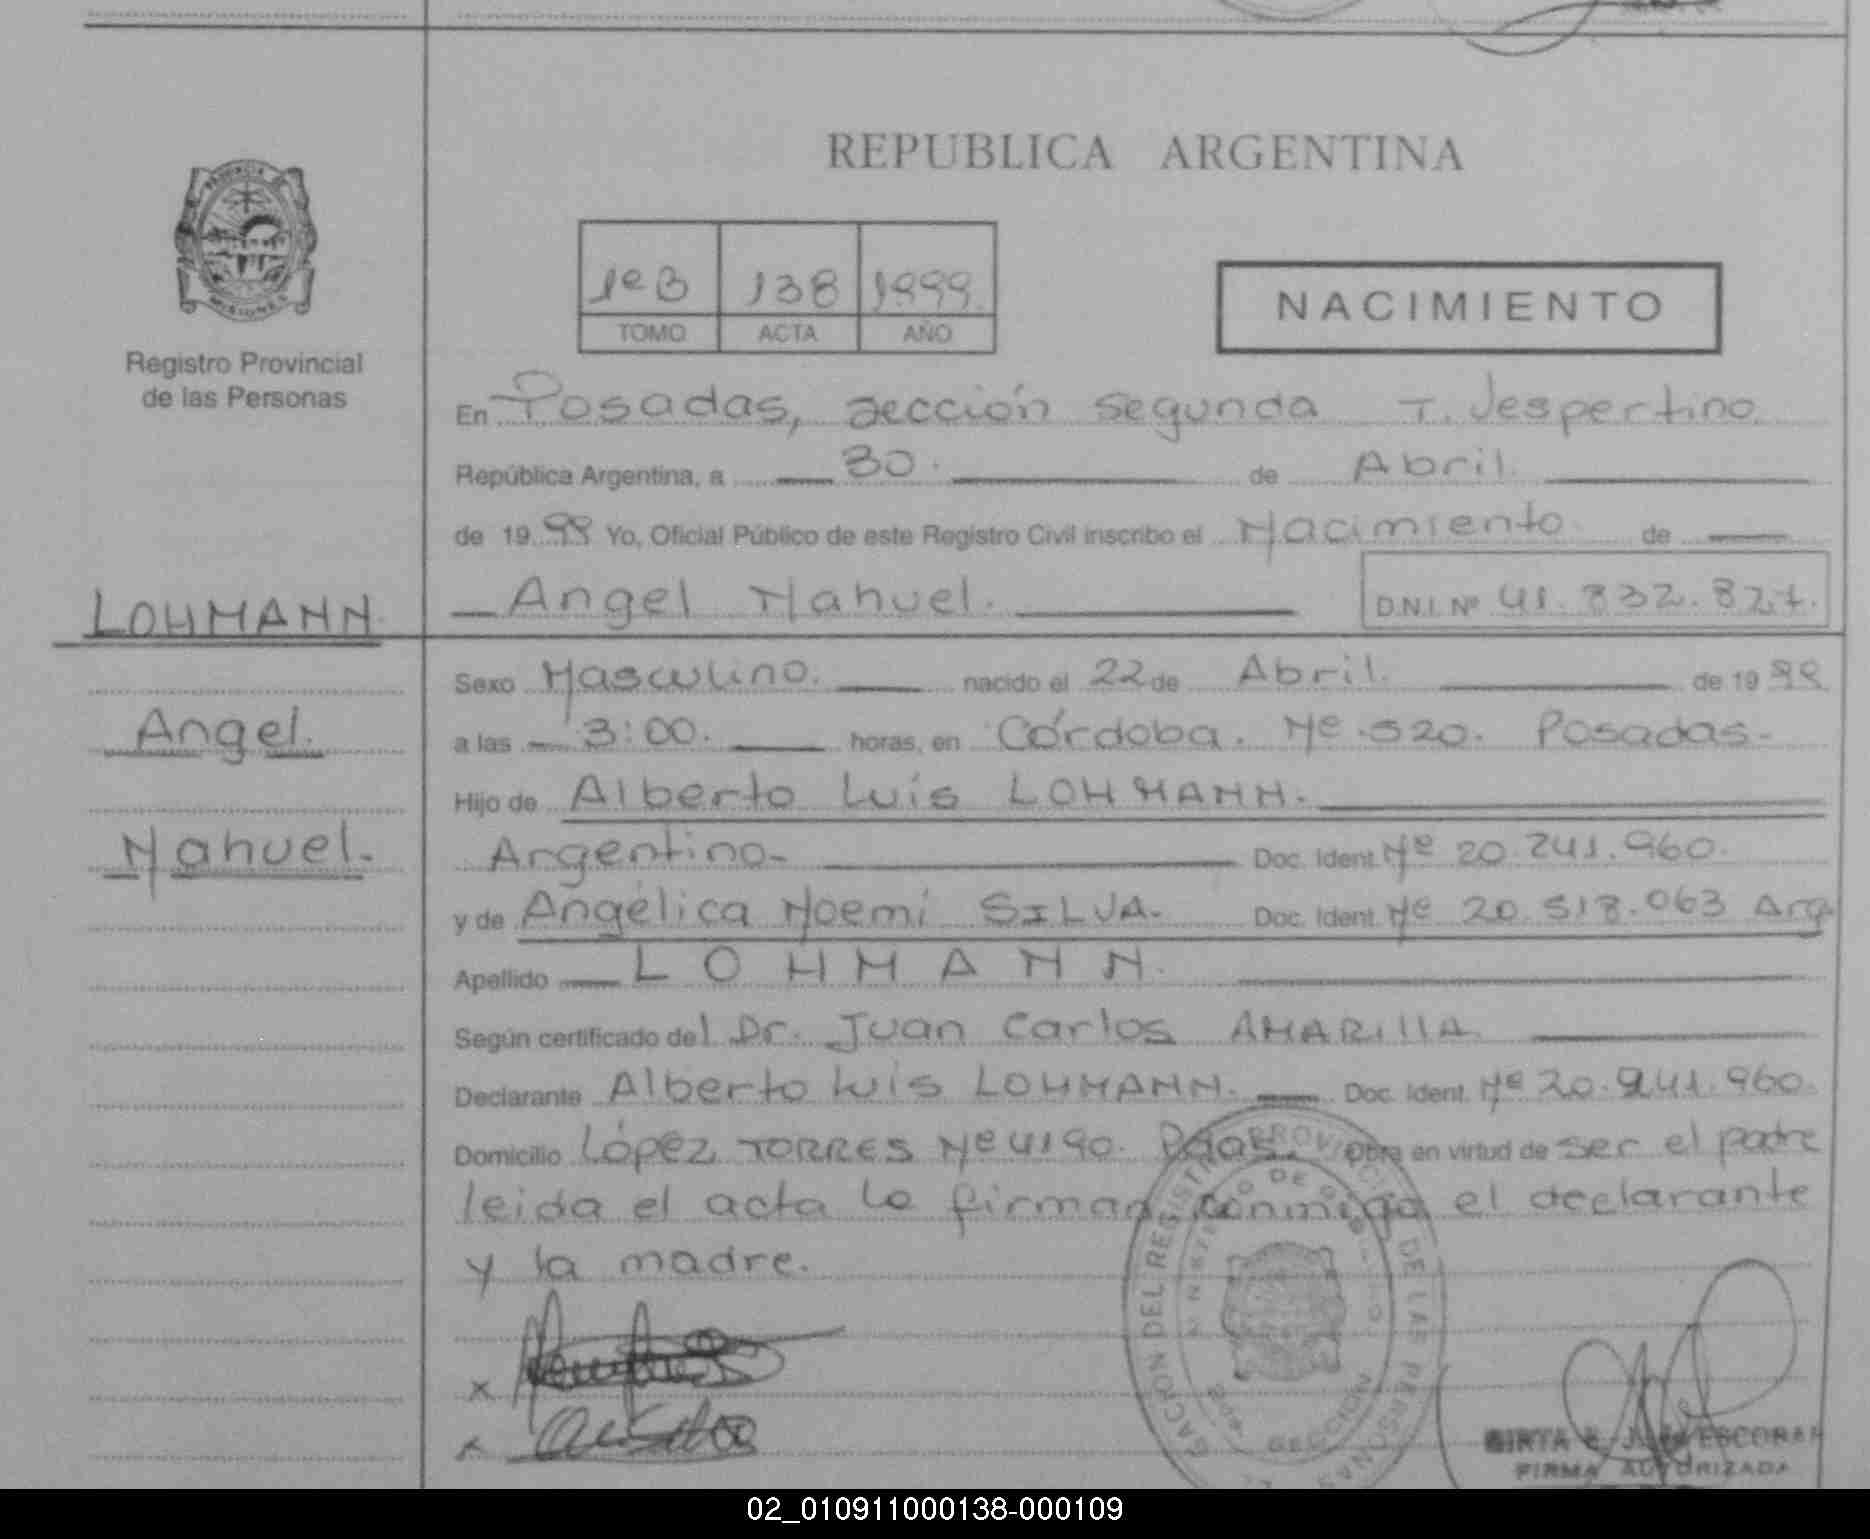 REPUBLICA ARGENTINA
PROVINCIA DE
MISIONES
Registro Provincial
de las Personas
1º B 138 1999.
TOMO ACTA AÑO
NACIMIENTO
En Posadas, sección segunda T. Vespertino
República Argentina, a 30. de Abril.
de 1999 Yo, Oficial Público de este Registro Civil inscribo el Nacimiento. de
Angel Nahuel. D.N.I. Nº 41.832.827.
LOHMANN.
Angel.
Nahuel.
Sexo Masculino. nacido el 22 de Abril. de 1999
a las 3:00. horas, en Córdoba. Nº 520. Posadas.
Hijo de Alberto Luis LOHMANN.
Argentino Doc. Ident. Nº 20.241.960.
y de Angélica Noemi SILVA. Doc. Ident. Nº 20.518.063 Arg.
Apellido LOHMANN.
Según certificado del Dr. Juan Carlos AMARILLA.
Declarante Alberto Luis LOHMANN. Doc. Ident. Nº 20.241.960.
Domicilio López TORRES Nº 4190. Pdas. Obra en virtud de ser el padre
leida el acta la firman conmigo el declarante
y la madre.
x
x
DEL REGISTRO PROVINCIAL DE LAS PERSONAS
MINISTERIO DE GOBIERNO
SECCION
ESCOBAR
FIRMA AUTORIZADA
02_010911000138-000109